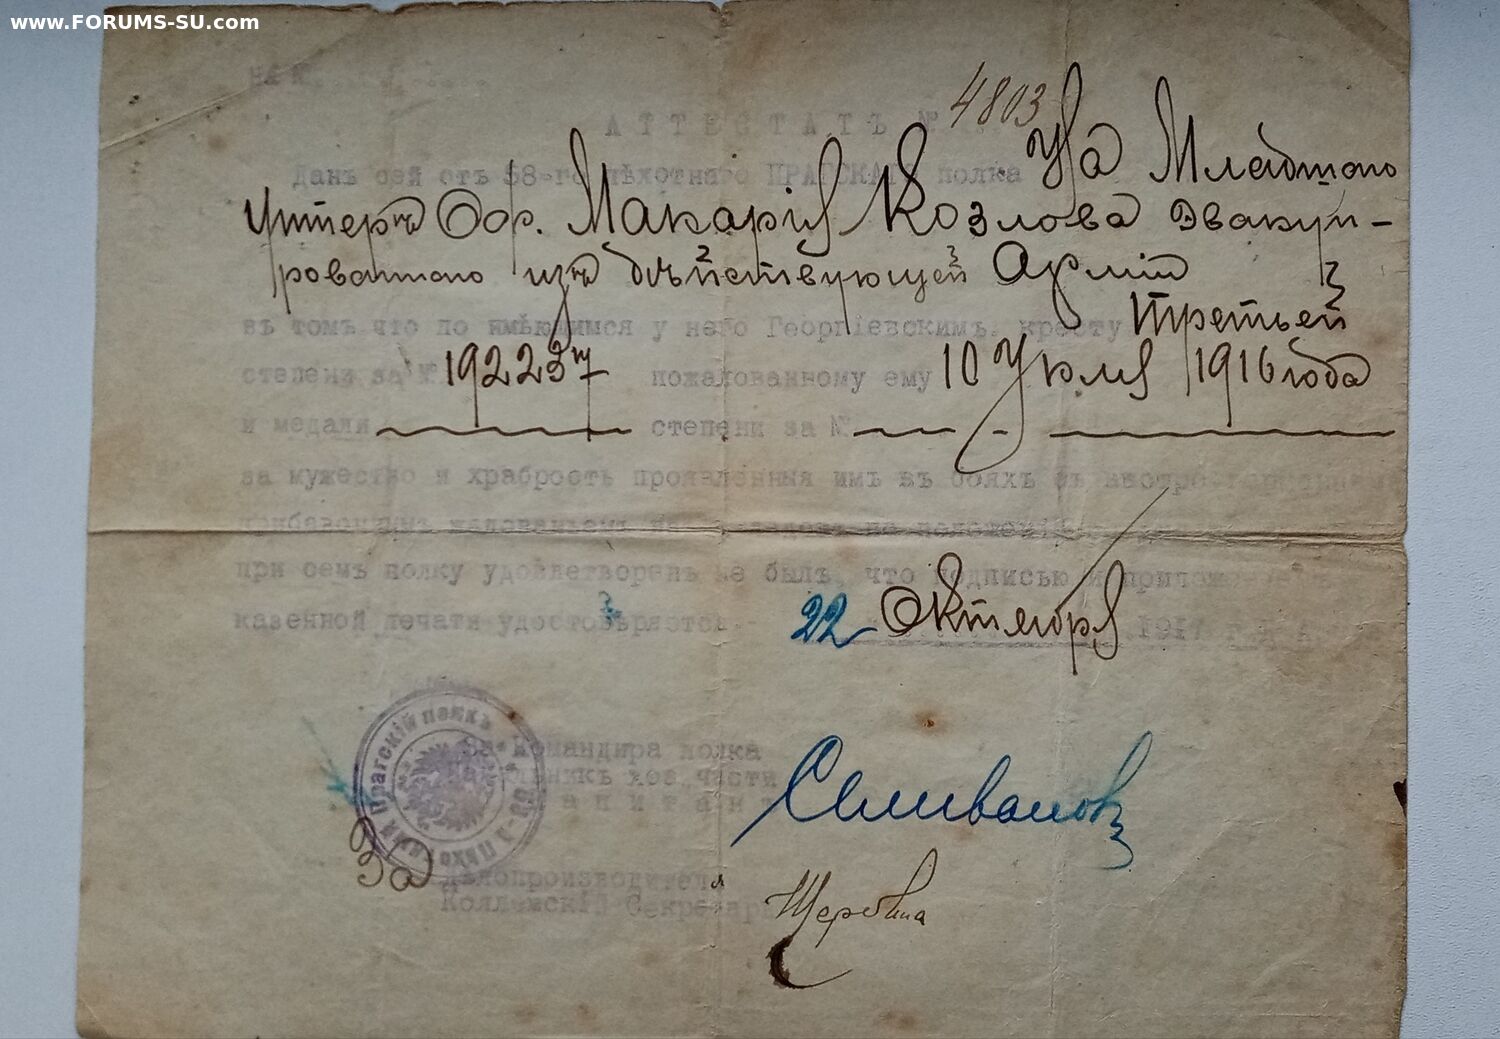 www.FORUMS-SU.com
АТТЕСТАТЪ № 4803
Данъ сей отъ 58-го пѣхотнаго ПРАГСКАГО полка На Младшаго
Унтеръ Оф. Макарія Козлова эвакуи-
рованнаго изъ дѣйствующей Арміи
въ томъ что по имѣющимся у него Георгіевскимъ кресту третьей
степени за № 192237 пожалованному ему 10 Июля 1916 года
и медали степени за № -
за мужество и храбрость проявленныя имъ въ бояхъ съ
прибавочнымъ жалованьемъ по положенію
при семъ полку удовлетворенъ не былъ, что подписью и приложеніе
казенной печати удостовѣряется.- 22 Октября 1917
Прагскій полкъ
За Командира полка
Начальникъ хоз. части
Капитанъ Селивановъ
За Дѣлопроизводителя
Коллежскій Секретарь Щербина